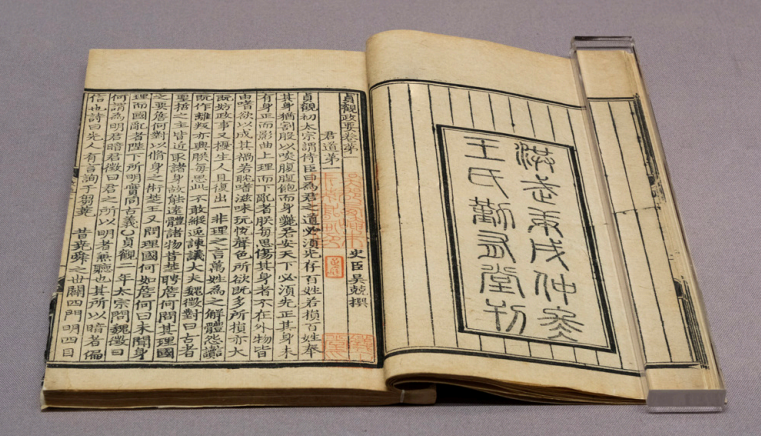 洪武庚戌仲冬
王氏勤有堂刊
貞觀政要卷第一
君道第一
史臣吳兢撰
貞觀初太宗謂侍臣曰為君之道必須先存百姓若損百姓奉
其身猶割股以啖腹腹飽而身斃若安天下必須先正其身未
有身正而影曲上理而下亂者朕每思傷其身者不在外物皆
由嗜欲以成其禍若耽嗜滋味玩悅聲色所欲既多所損亦大
既妨政事又擾生人且復出一非理之言萬姓為之解體怨讟
既作離叛亦興朕每思此不敢縱逸諫議大夫魏徵對曰古者
聖哲之主皆近取諸身故能遠體諸物昔楚聘詹何問其理國
之要詹何對以脩身之術楚王又問理國何如詹何曰未聞身
理而國亂者陛下所明實同古義〇貞觀二年太宗問魏徵曰
何謂為明君暗君徵曰君之所以明者兼聽也其所以暗者偏
信也詩曰先人有言詢于芻蕘 昔堯舜之世闢四門明四目